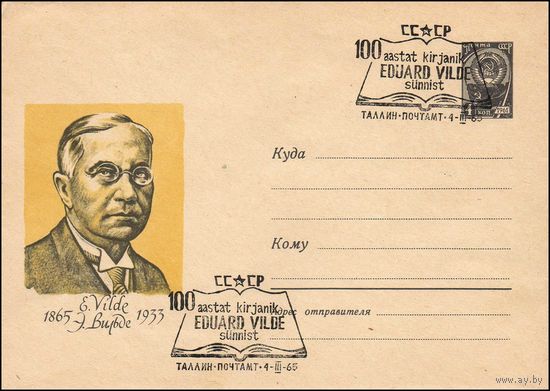 СС☆СР
100 aastat kirjanik
EDUARD VILDE
sünnist
ТАЛЛИН·ПОЧТАМТ·4-III-65
ПОЧТА СССР
КОП.
Куда
Кому
Адрес отправителя
E. Vilde
1865 1933
Э. Вильде
СС☆СР
100 aastat kirjanik
EDUARD VILDE
sünnist
ТАЛЛИН-ПОЧТАМТ·4-III-65
www.ay.by